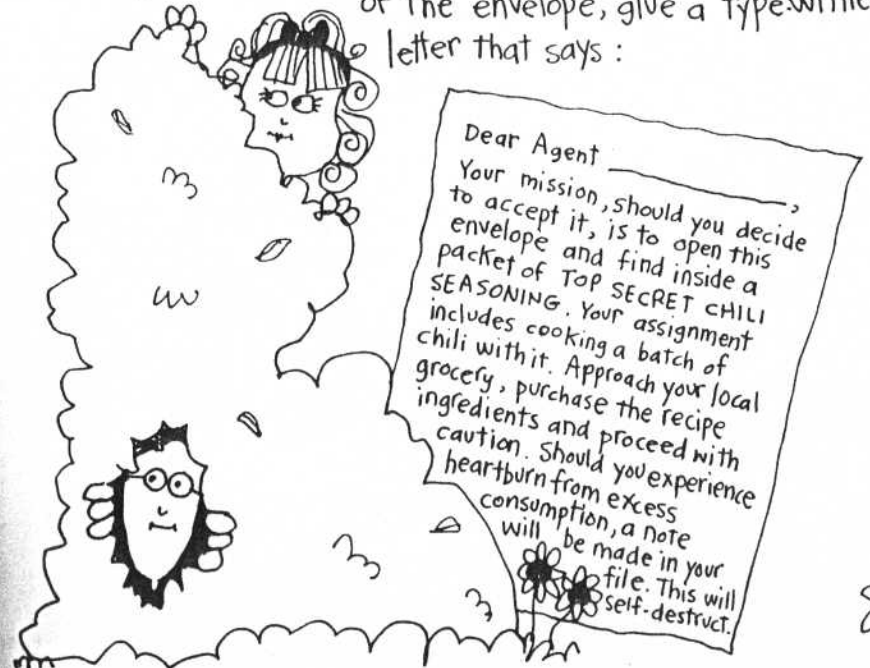 of the envelope, give a type-written
letter that says :
Dear Agent ___________,
Your mission, should you decide
to accept it, is to open this
envelope and find inside a
packet of TOP SECRET CHILI
SEASONING. Your assignment
includes cooking a batch of
chili with it. Approach your local
grocery, purchase the recipe
ingredients and proceed with
caution. Should you experience
heartburn from excess
consumption, a note
will be made in your
file. This will
self-destruct.